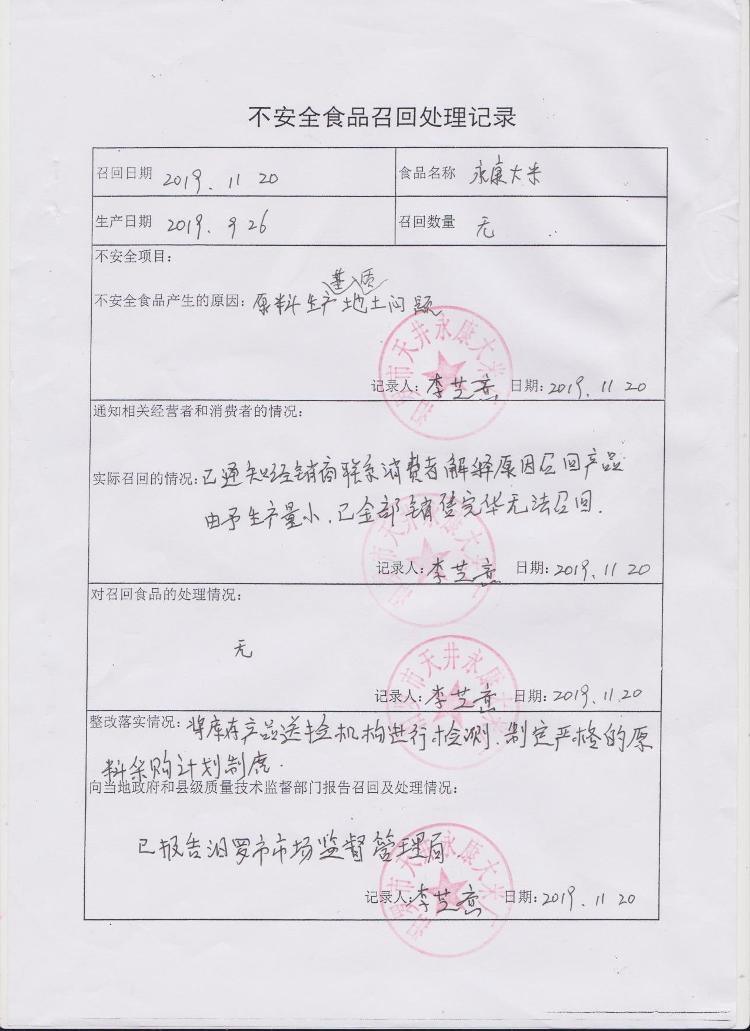 不安全食品召回处理记录
召回日期 2019.11 20 食品名称 永康大米
生产日期 2019.9 26 召回数量 无
不安全项目：
基质
不安全食品产生的原因：原料生产地土问题
记录人：李芝 日期：2019.11 20
通知相关经营者和消费者的情况：
实际召回的情况：已通知经销商联系消费者解释原因召回产品
由于生产量小，已全部销售完毕无法召回.
记录人：李芝 日期：2019.11 20
对召回食品的处理情况：
无
记录人：李芝 日期：2019.11.20
整改落实情况：将库存产品送检机构进行检测.制定严格的原
料采购计划制度.
向当地政府和县级质量技术监督部门报告召回及处理情况：
已报告汨罗市市场监督管理局
记录人：李芝 日期：2019.11 20
汨罗市天井永康大米厂